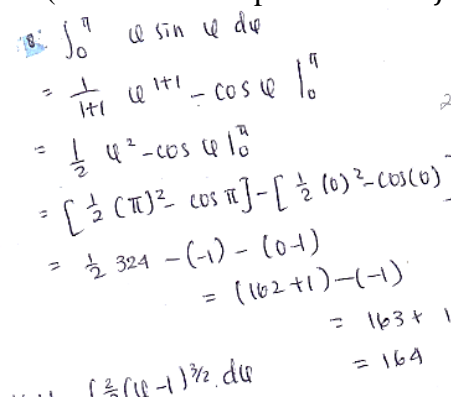 8. ∫₀^π φ sin φ dφ
= 1/(1+1) φ^(1+1) - cos φ |₀^π
= 1/2 φ² - cos φ |₀^π
= [1/2 (π)² - cos π] - [1/2 (0)² - cos(0)
= 1/2 324 - (-1) - (0-1)
= (162 + 1) - (-1)
= 163 + 1
= 164